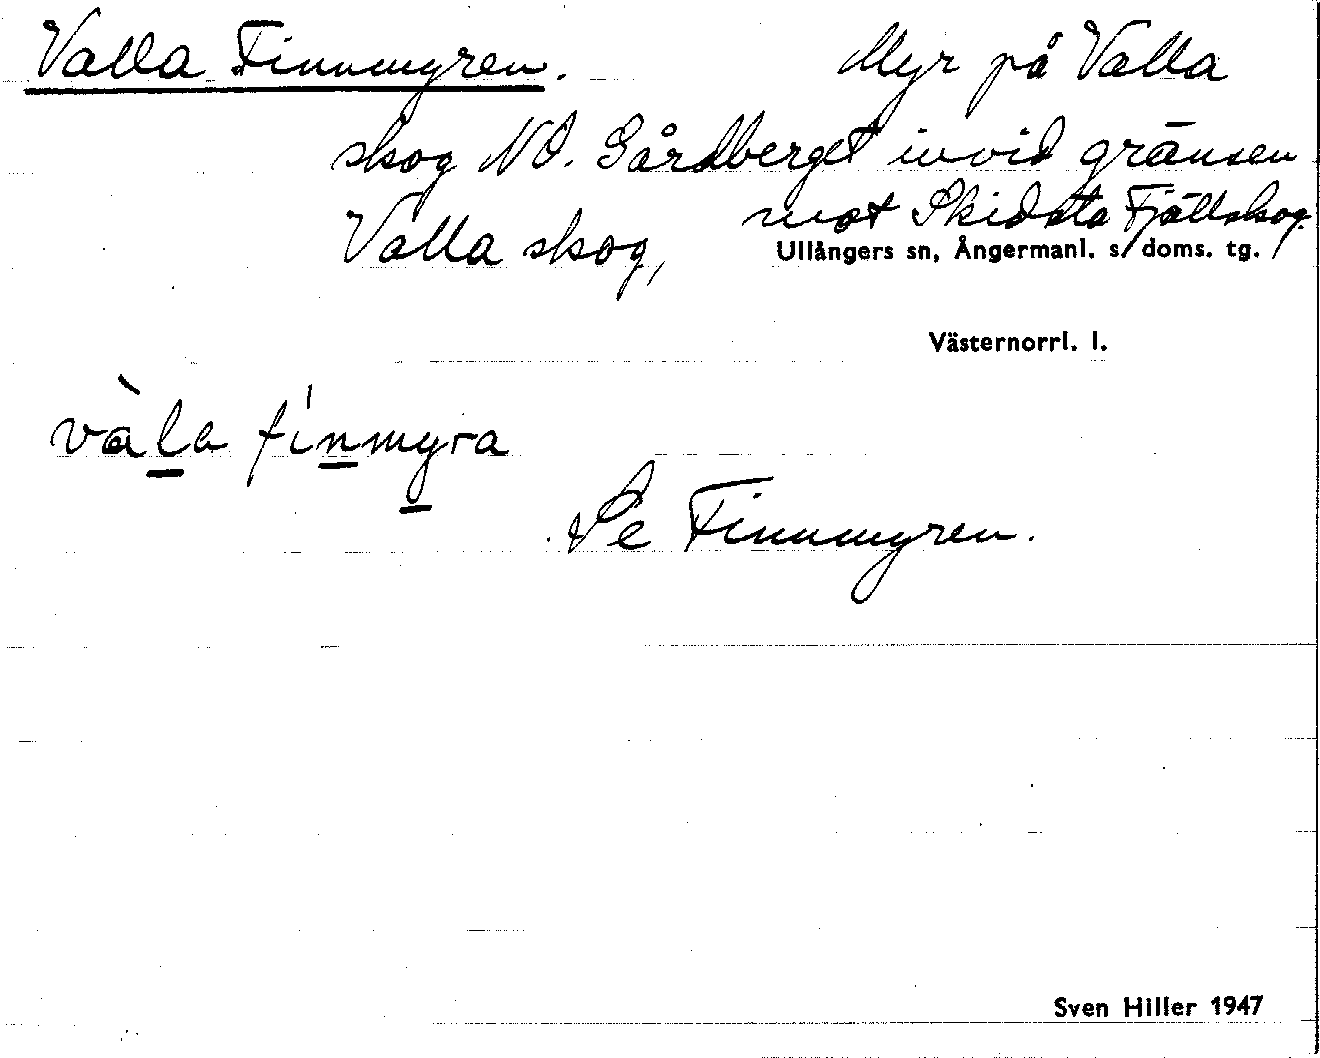 Valla Finnmyren. Myr på Valla
skog NO. Gårdberget invid gränsen
mot Skidsta Fjällskog.
Valla skog,
Ullångers sn, Ångermanl. s. doms. tg.
Västernorrl. l.
vàla finmyra
Se Finnmyren.
Sven Hiller 1947